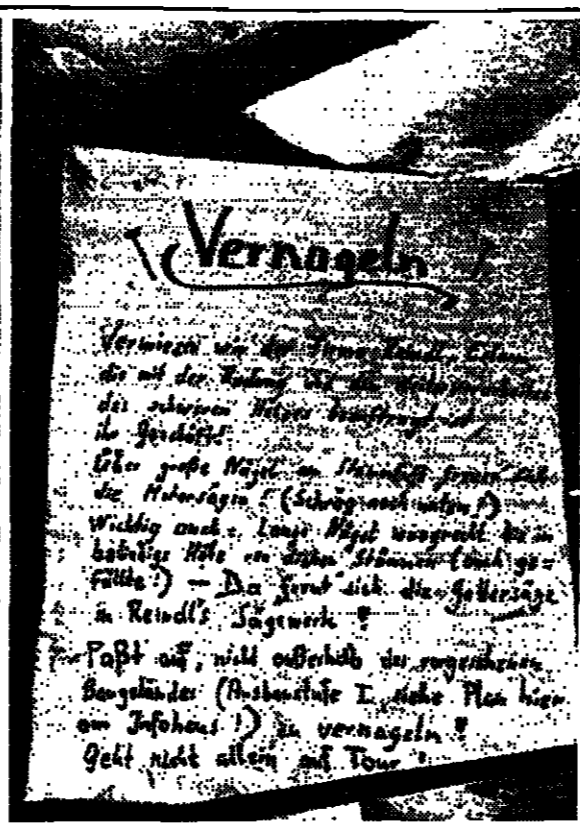 Vernageln
Vermiesen wir der Firma Reindl,
die mit der Rodung und
des schweren Holzes beauftragt ist,
ihr Geschäft!
Über große Nägel am Stammfuß freuen sich
die Motorsägen! (Schräg nach unten!)
Wichtig auch: Lange Nägel waagrecht bis in
beliebige Höhe in dicken Stämmen (auch ge=
fällte!) — Da freut sich die Gattersäge
in Reindl's Sägewerk!
Paßt auf, nicht außerhalb des vorgesehenen
Baugeländes (Ausbaustufe I, siehe Plan hier
am Infohaus!) zu vernageln!
Geht nicht allein auf Tour!